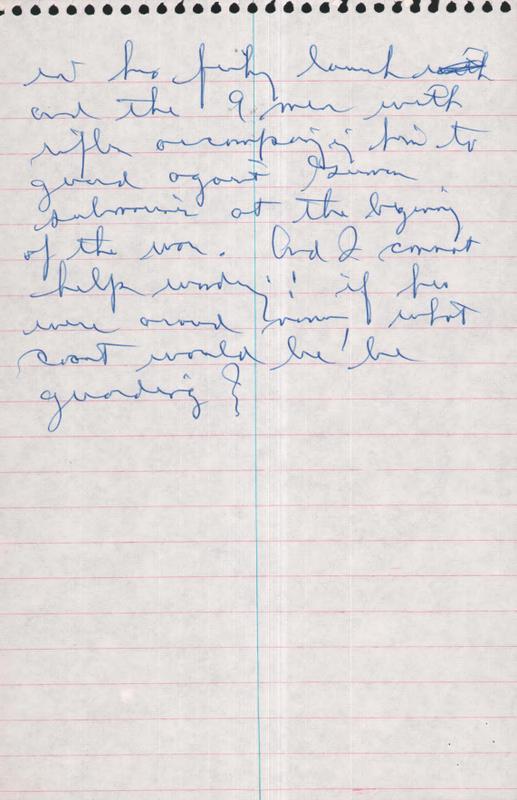 in his fishing launch
and the 9 men with
rifles accompanying him to
guard against German
submarines at the beginning
of the war. And I cannot
help wondering if he
were around now, what
coast would he be
guarding?